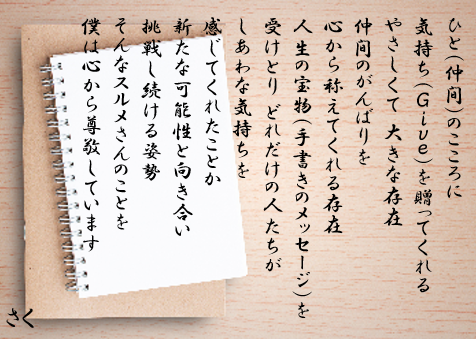 ひと(仲間)のこころに
気持ち(Give)を贈ってくれる
やさしくて 大きな存在
仲間のがんばりを
心から称えてくれる存在
人生の宝物(手書きのメッセージ)を
受けとり どれだけの人たちが
しあわな気持ちを
感じてくれたことか
新たな可能性と向き合い
挑戦し続ける姿勢
そんなスルメさんのことを
僕は心から尊敬しています
さく